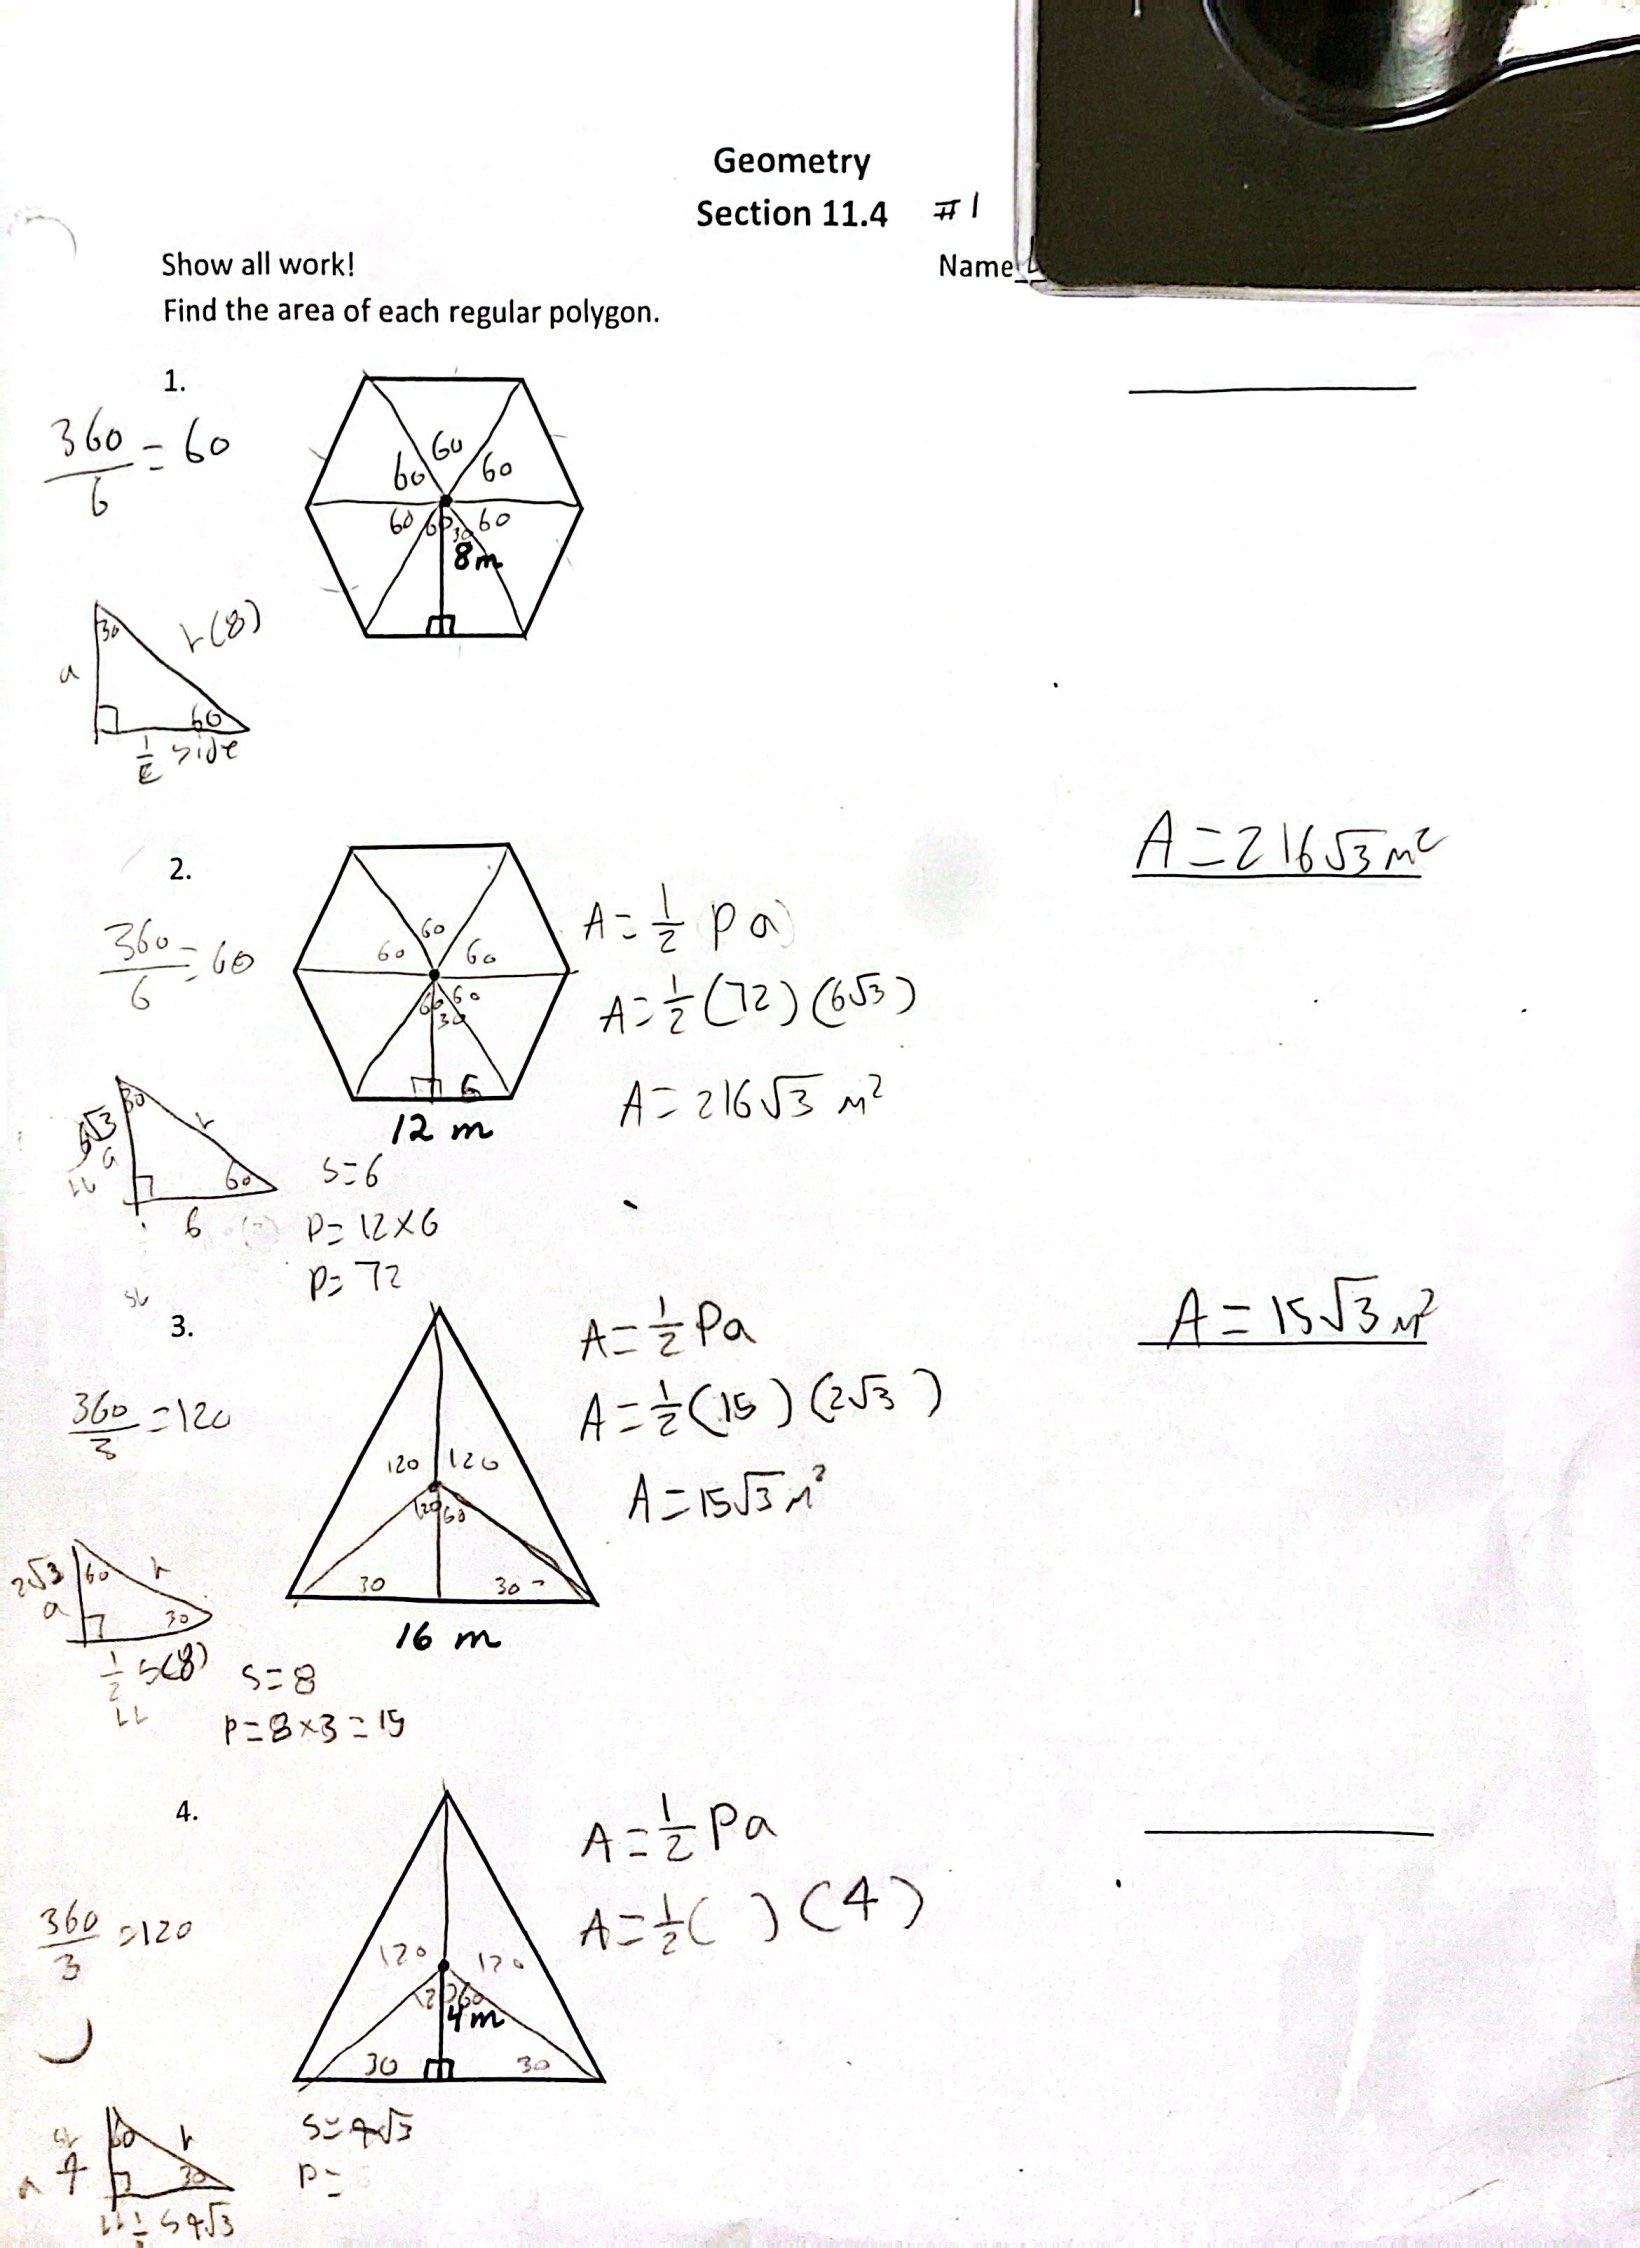 Geometry
Section 11.4 #1
Show all work!
Name
Find the area of each regular polygon.
1.
360/6 = 60
60
60 60
60 60 60
30
8m
30 r(8)
a
60
1/2 side
A = 216√3 m²
2.
360/6 = 60
60
60 60
60 60
30
6
12 m
A = 1/2 Pa
A = 1/2 (72) (6√3)
A = 216√3 m²
30
6√3 r
a
LL
60
6
s=6
P= 12×6
P= 72
SL
A = 15√3 m²
3.
360/3 = 120
120 120
120 60
30 30
16 m
A = 1/2 Pa
A = 1/2 (15) (2√3)
A = 15√3 m²
2√3 60 r
a 30
1/2 s(8)
LL
s= 8
P= 8×3 = 15
4.
360/3 = 120
120 120
120 60
4m
30 30
A = 1/2 Pa
A = 1/2 ( ) (4)
SL 60 r
a 4 30
LL 1/2 s 4√3
s= 4√3
P=